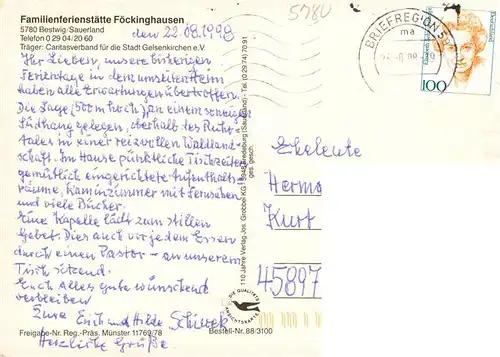 Familienferienstätte Föckinghausen
5780 Bestwig/Sauerland
Telefon 0 29 04/20 60
Träger: Caritasverband für die Stadt Gelsenkirchen e.V.
den 22.08.1998
5780
Ihr Lieben, unsere bisherigen
Ferientage in dem umseitenHeim
haben alle Erwartungen übertroffen.
Die Lage, 500m hoch, an einem sonnigen
Südhang gelegen, oberhalb des Ruhr-
tales in einer reizvollen Waldland-
schaft. Im Hause pünktliche Tischzeiten
gemütlich eingerichtete Aufenthalts-
räume, Kaminzimmer mit Fernsehen
und viele Bücher.
Eine Kapelle lädt zum stillen
Gebet. Dies auch vor jedem Essen
durch einen Pastor - an unserem
Tisch sitzend.
Euch Alles gute wünschend
verbleiben
Eure Erich und Hilde
Herzliche Grüße.
Freigabe-Nr. Reg.-Präs. Münster 11769/78
Bestell-Nr. 88/3100
110 Jahre Verlag Jos. Grobbel KG · 5948 Fredeburg (Sauerland) - Tel. (0 29 74) 70 91
ges. gesch.
DIE QUALITÄTS
ANSICHTSKARTE
BRIEFREGION 5
ma
100
Eheleute
Herma
Kurt
45897